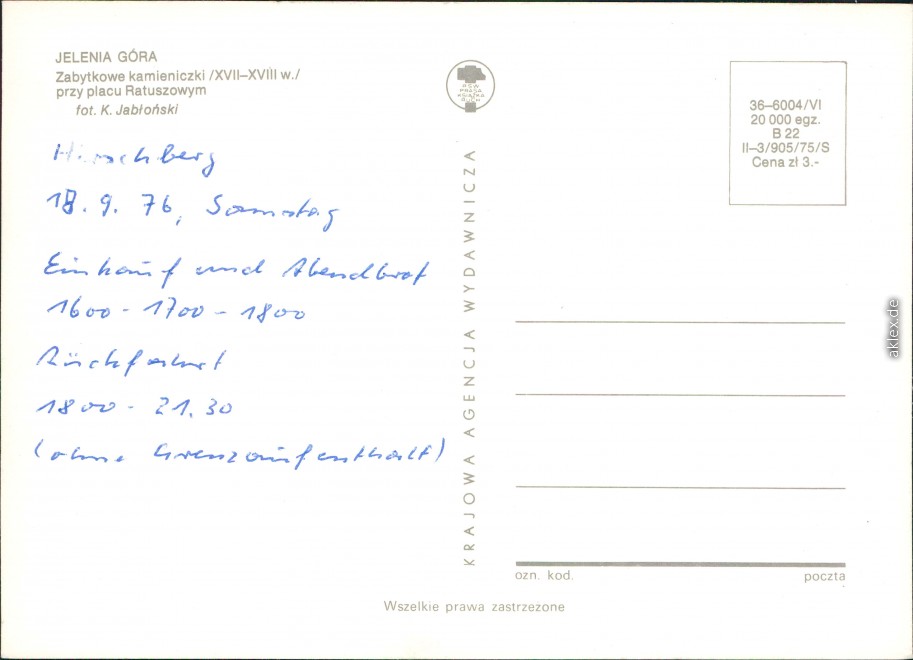 JELENIA GÓRA
Zabytkowe kamieniczki /XVII–XVIII w./
przy placu Ratuszowym
fot. K. Jabłoński
Hirschberg
18.9.76, Samstag
Einkauf und Abendbrot
1600 - 1700 - 1800
Rückfahrt
1800 - 21.30
(ohne Grenzaufenthalt)
RSW
PRASA
KSIĄŻKA
RUCH
KRAJOWA AGENCJA WYDAWNICZA
36–6004/VI
20 000 egz.
B 22
II–3/905/75/S
Cena zł 3.-
ozn. kod.
poczta
Wszelkie prawa zastrzeżone
aklex.de